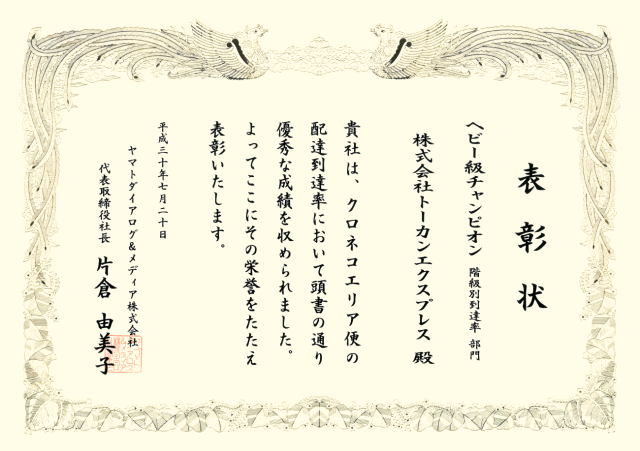 表彰状
ヘビー級チャンピオン 階級別到達率 部門
株式会社トーカンエクスプレス 殿
貴社は、クロネコエリア便の
配達到達率において頭書の通り
優秀な成績を収められました。
よってここにその栄誉をたたえ
表彰いたします。
平成三十年七月二十日
ヤマトダイアログ&メディア株式会社
代表取締役社長 片倉 由美子